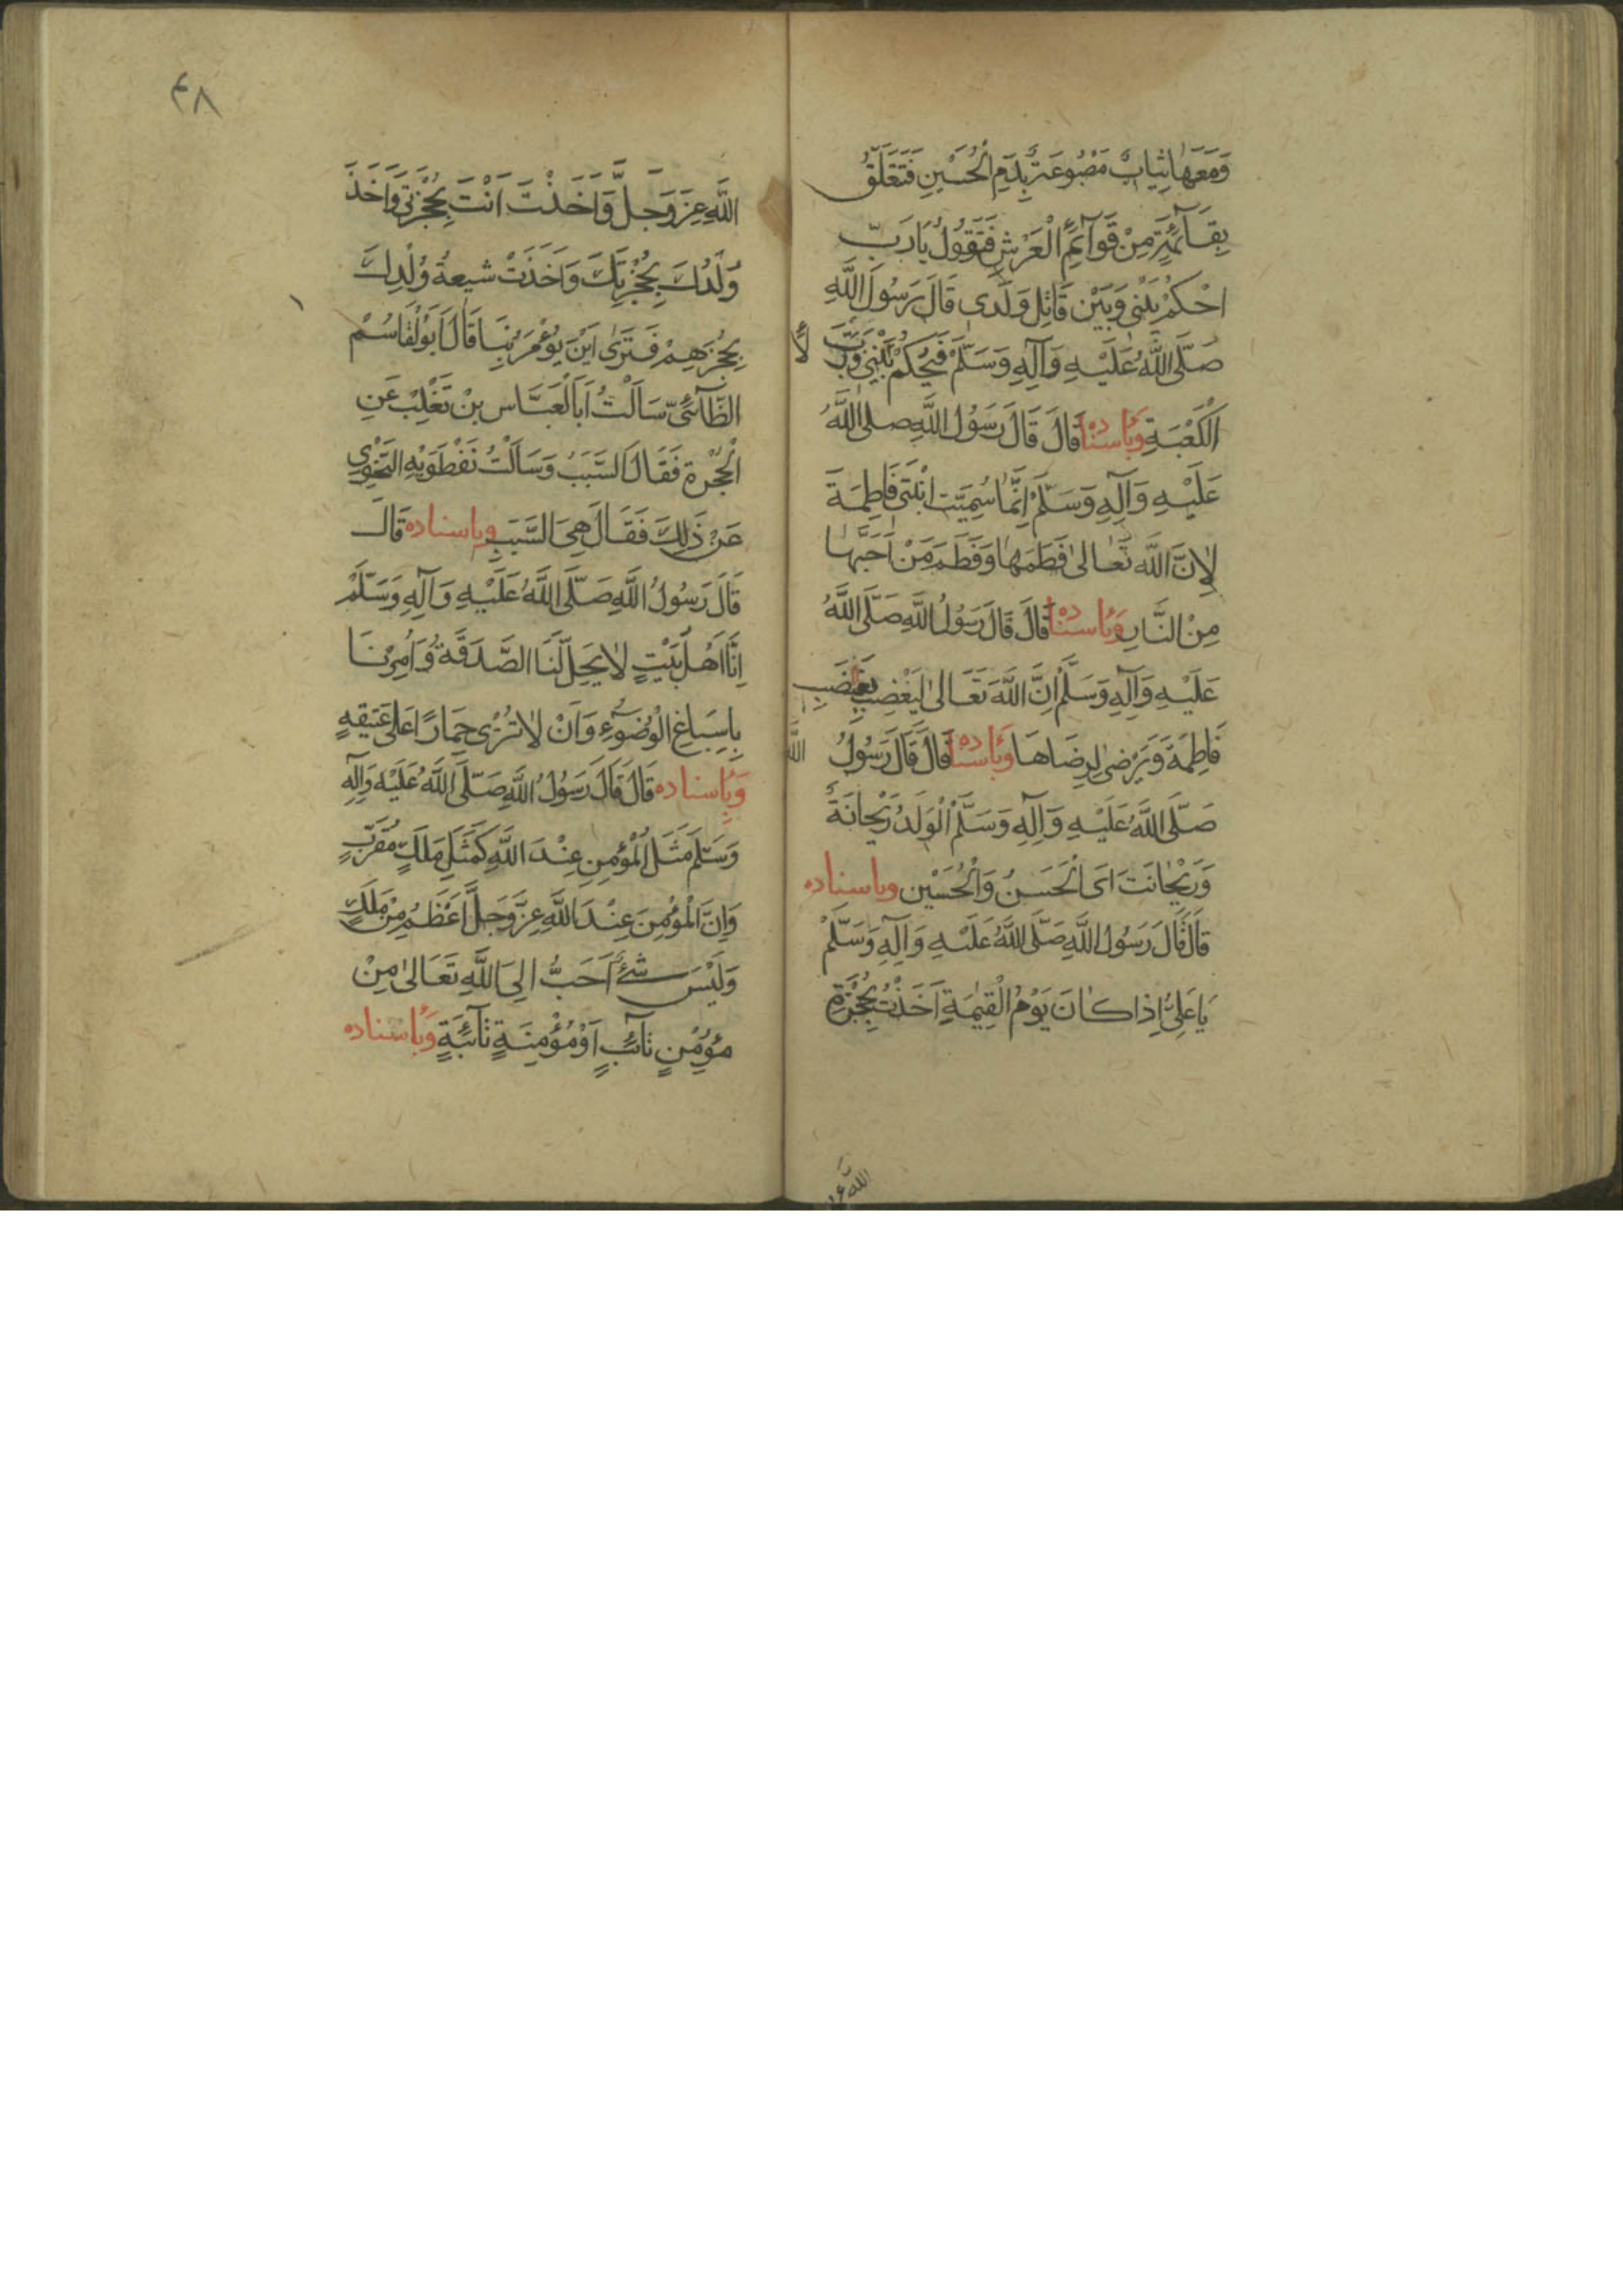 وَمَعَهَا ثِيَابٌ مَصْبُوغَةٌ بِدَمِ الْحُسَيْنِ فَتَعَلَّقُ
بِقَآئِمَةٍ مِنْ قَوَآئِمِ الْعَرْشِ فَتَقُولُ يَا رَبِّ
احْكُمْ بَيْنِي وَبَيْنَ قَاتِلِ وَلَدِي قَالَ رَسُولُ اللَّهِ
صَلَّى اللَّهُ عَلَيْهِ وَآلِهِ وَسَلَّمْ فَيَحْكُمُ بَيْنِي وَرَبِّ
الْكَعْبَةِ وَبِاسْنَادِهِ قَالَ قَالَ رَسُولُ اللَّهِ صلى اللَّهُ
عَلَيْهِ وَآلِهِ وَسَلَّمْ إِنَّمَا سُمِيَّتِ ابْنَتِي فَاطِمَةَ
لِاَنَّ اللَّهَ تَعَالىٰ فَطَمَهَا وَفَطَمَ مَنْ اَحَبَّهَا
مِنَ النَّارِ وَبِاسْنَادِهِ قَالَ قَالَ رَسُولُ اللَّهِ صَلَّى اللَّهُ
عَلَيْهِ وَآلِهِ وَسَلَّمْ اِنَّ اللَّهَ تَعَالىٰ لَيَغْضِبُ بِغَضَبِ
فَاطِمَةَ وَيَرْضىٰ لِرِضَاهَا وَبِاسْنَادِهِ قَالَ قَالَ رَسُولُ اللَّهِ
صَلَّى اللَّهُ عَلَيْهِ وَآلِهِ وَسَلَّمْ الْوَلَدُ رَيْحَانَةٌ
وَرَيْحَانَتَاىَ الْحَسَنُ وَالْحُسَيْن وباسناده
قَالَ قَالَ رَسُولُ اللَّهِ صَلَّى اللَّهُ عَلَيْهِ وَآلِهِ وَسَلَّمْ
يَا عَلِيُّ اِذَا كَانَ يَوْمُ الْقِيٰمَةِ اَخَذْتُ بِحُجْزَةِ
٤٨
اللَّهِ عِزَّ وَجَلَّ وَاَخَذْتَ اَنْتَ بِحُجْزَتِي وَاَخَذَ
وَلَدُكَ بِحُجْزَتِكَ وَاَخَذَتْ شيعةُ وُلْدِكَ
بِحُجْزِهِمْ فَتَرىٰ اَيْنَ يُؤْمَرُ بِنَا قَالَ اَبُو لْقَاسُمْ
الطَّآئِيُّ سَاَلْتُ اَبَا لْعَبَّاسِ بْنَ تَغْلِبْ عَنِ
الْحُجْزَةِ فَقَالَ السَّبَبُ وَسَاَلْتُ نَفْطَوَيْهِ النَّحْوِيَّ
عَنْ ذَلِكَ فَقَالَ هِيَ السَّبَبِ وباسناده قَالَ
قَالَ رَسُولُ اللَّهِ صَلَّى اللَّهُ عَلَيْهِ وَآلِهِ وَسَلَّمْ
اِنَّا اَهْلُ بَيْتٍ لَا يَحِلُّ لَنَا الصَّدَقَةُ وَاُمِرْنَا
بِاِسِبَاغِ الْوُضُوٓءِ وَاَنْ لَا نُزْىِ حِمَارًا عَلى عَتيقهٍ
وَبِاسناده قَالَ قَالَ رَسُولُ اللَّهِ صَلَّى اللَّهُ عَلَيْهِ وَآلِهِ
وَسَلَّمَ مَثَلُ الْمُؤْمِنِ عِنْدَ اللَّهِ كَمَثَلِ مَلَكٍ مُقَرَّبٍ
وَاِنَّ الْمُؤْمِنَ عِنْدَ اللَّهِ عِزَّ وَجَلَّ اَعْظَمُ مِنْ مَلَكٍ
وَلَيْسَ شَئٌ اَحَبُّ اِلىَ اللَّهِ تَعَالىٰ مِنْ
مُؤْمِنٍ تَآئِبٍ اَوْ مُؤْمِنَةٍ تَآئِبَةٍ وَبِاسناده